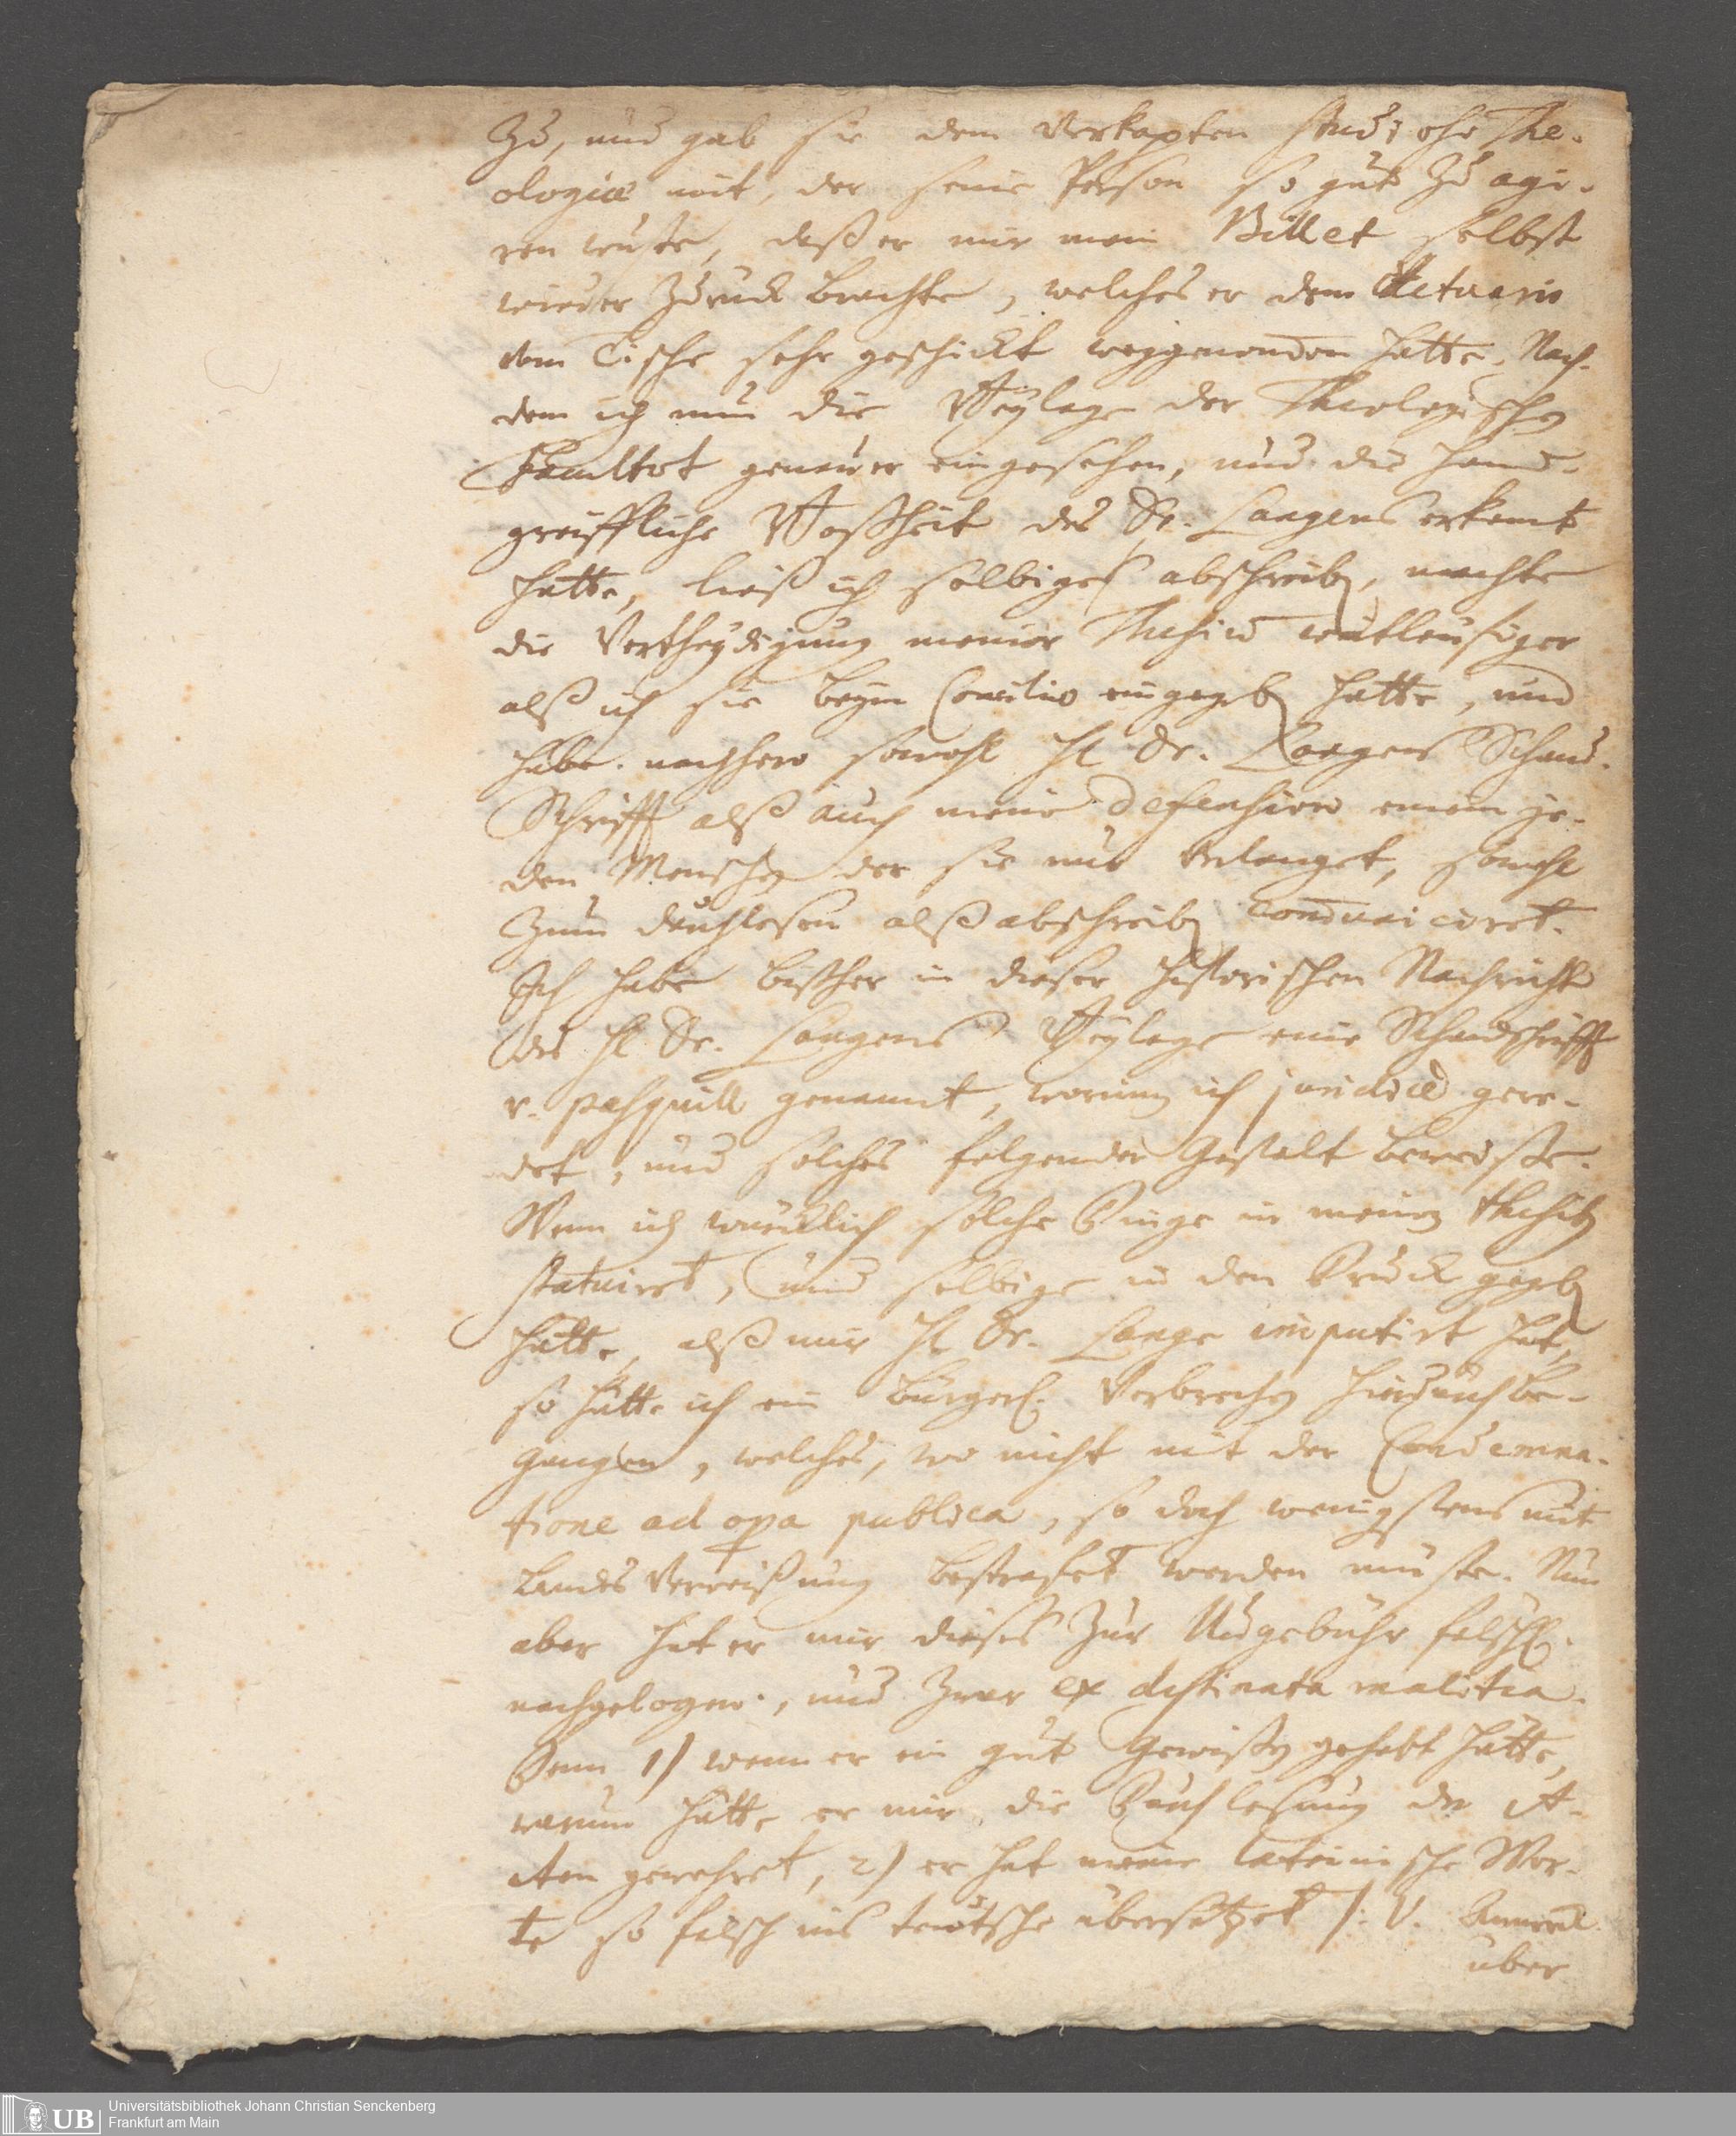 zu, und gab sie dem verkapten Studioso The-
ologiæ mit, der seine Person so gut zu agi-
ren wuste, daß er mir mein Billet selbst
wieder zurück brachte, welches er dem Actuario
vom Tische sehr geschickt weggenomen hatte. Nach-
dem ich nun die Beylage der Theologischen
Facultet genauer eingesehen, und die hand-
greiffliche Boßheit des Dr. Langens erkant
hatte, ließ ich selbiges abschreiben, machte
die Vertheydigung meiner Thesium weitleufiger
alß ich sie beym Concilio eingegeben hatte, und
habe nachhero sowohl H. Dr. Langens Schand-
Schrifft alß auch meine Defension einem je-
den Menschen der sie nur verlanget, sowohl
zum durchlesen alß abschreiben communiciret.
Ich habe bißher in dieser historischen Nachricht
des H. Dr. Langens Beylage eine Schandschrifft
u. pasquill genannt, worinn ich juridice gere-
det, und solches folgender Gestalt beweise.
Wenn ich würcklich solche Dinge in meinen thesibus
statuiret, und selbige in den Druck gegeben
hätte, alß mir H. Dr. Lange imputirt hat,
so hätte ich ein bürgerl. Verbrechen hierdurch be-
gangen, welches, wo nicht mit der Condemna-
tione ad opera publica, so doch wenigstens mit
Landes Verweißung bestrafet werden müste. Nun
aber hat er mir dieses zur Ungebühr fälschl.
nachgelogen, und zwar ex destinata malitia.
Denn 1) wenn er ein gut Gewißen gehabt hätte,
warum hätte er mir die Durchlesung der A-
cten gewehret, 2) er hat meine lateinische Wor-
te so falsch ins teutsche übersetzet /: V. Anmerk.
über
Universitätsbibliothek Johann Christian Senckenberg
Frankfurt am Main
UB